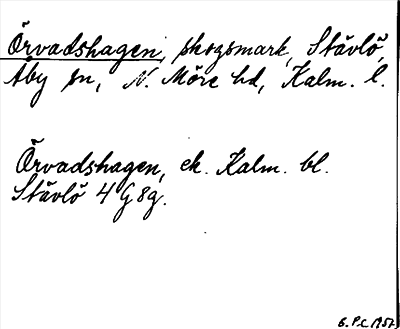 Örvadshagen, skogsmark, Stävlö,
Åby sn, N. Möre hd, Kalm. l.
Örvadshagen, ek. Kalm. bl.
Stävlö 4 G 8g.
G. P-c 1957